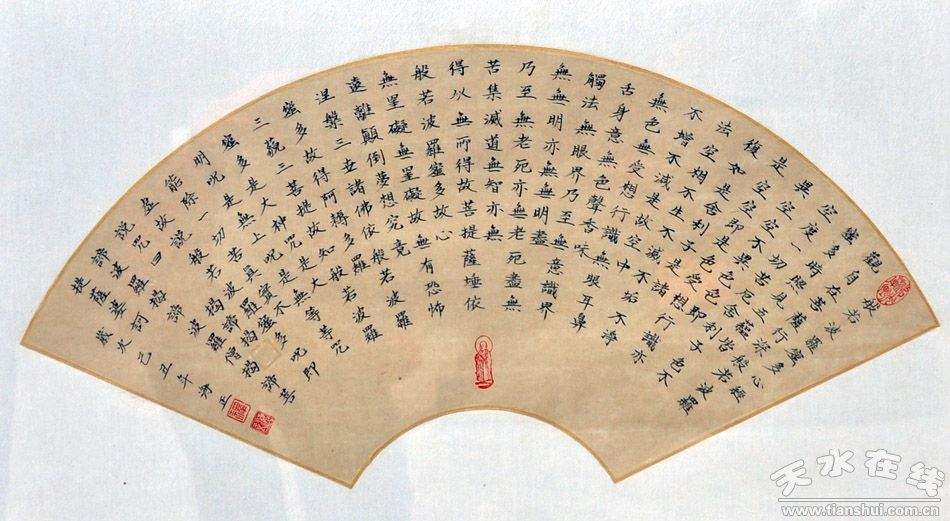 般若波羅蜜多心經
觀自在菩薩行深般若波羅
蜜多時照見五蘊皆
空度一切苦厄舍利子色不
異空空不異色色即
是空空即是色受想行識亦
復如是舍利子是諸
法空相不生不滅不垢不淨
不增不減是故空中
無色無受想行識無眼耳鼻
舌身意無色聲香味
觸法無眼界乃至無意識界
無無明亦無無明盡
乃至無老死亦無老死盡無
苦集滅道無智亦無
得以無所得故菩提薩埵依
般若波羅蜜多故心
無罣礙無罣礙故無有恐怖
遠離顛倒夢想究竟
涅槃三世諸佛依般若波羅
蜜多故得阿耨多羅
三藐三菩提故知般若波羅
蜜多是大神咒是大
明咒是無上咒是無等等咒
能除一切苦真實不
虛故說般若波羅蜜多咒即
說咒曰揭諦揭諦波羅揭
諦波羅僧揭諦菩
提薩婆訶
歲次己丑年
天水在线
www.tianshui.com.cn